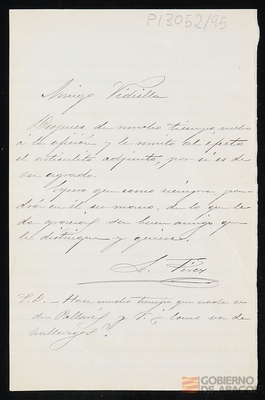 P13052/95
Amigo Vidiella
Despues de mucho tiempo, vuelvo
á la afición y le remito al efecto
el articulito adjunto, por si es de
su agrado.
Espero que como siempre pon-
drá en él su mano, de lo que le
da gracias su buen amigo que
le distingue y quiere.
S.
P.D. - Hace mucho tiempo que nada se
de Pallarés y V. ¿Como va de
hallazgos?
GOBIERNO
DE ARAGON